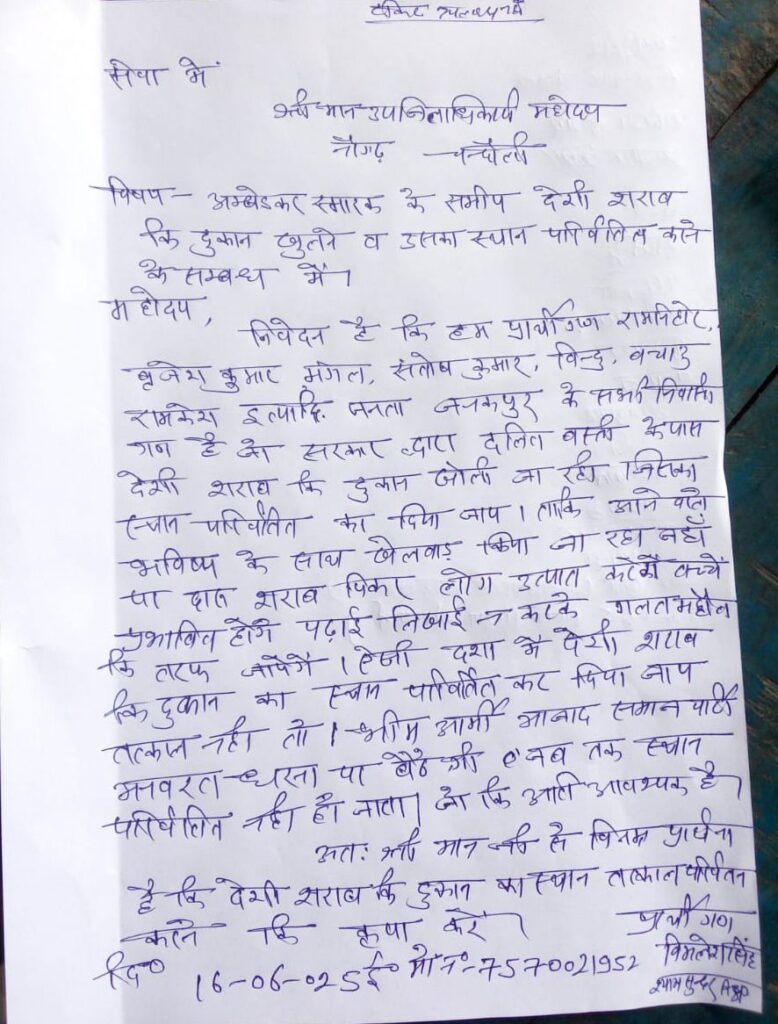 टिकट उपलब्ध नहीं
सेवा में
श्री मान उपजिलाधिकारी महोदय
नौगढ़ चन्दौली
विषय - अम्बेडकर स्मारक के समीप देशी शराब
कि दुकान खुलने व उसका स्थान परिवर्तित करने
के सम्बन्ध में।
महोदय,
निवेदन है कि हम प्रार्थीगण रामनिहोर,
बृजेश कुमार मंगल, संतोष कुमार, विन्दु, बचाउ
रामकेश इत्यादि जनता जनकपुर के सभी निवासी
गण है जो सरकार द्वारा दलित वस्ती के पास
देशी शराब कि दुकान खोली जा रही जिसका
स्थान परिवर्तित कर दिया जाय। ताकि आने वाले
भविष्य के साथ खेलवाड़ किया जा रहा जहाँ
पर दारु शराब पिकर लोग उत्पात करेंगें बच्चें
प्रभावित होंगे पढ़ाई लिखाई न करके गलत माहौल
कि तरफ जायेगें। ऐसी दशा में देशी शराब
कि दुकान का स्थान परिवर्तित कर दिया जाय
तत्काल नहीं तो। भीम आर्मी आजाद समाज पार्टी
अनवरत धरना पर बैठेगी जब तक स्थान
परिवर्तित नहीं हो जाता। जो कि अति आवश्यक है।
अतः श्री मान जी से विनम्र प्रार्थना
है कि देशी शराब कि दुकान का स्थान तत्काल परिर्वतन
करने कि कृपा करें।
प्रार्थी गण
दि० 16-06-025 ई० मो न०-7570021952 विमलेश सिंह
श्यामसुन्दर ASP